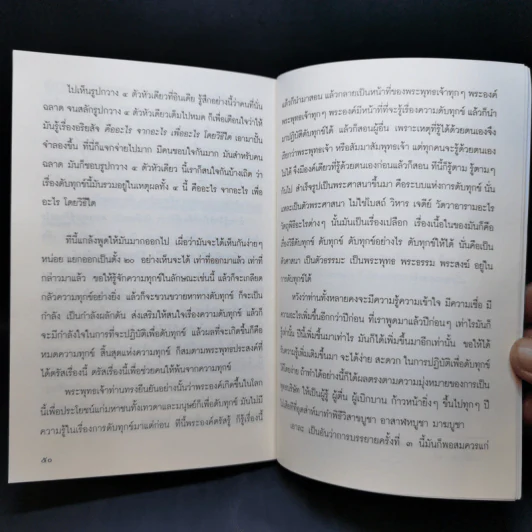 ไปเห็นรูปกวาง ๔ ตัวหัวเดียวที่อินเดีย รู้สึกอย่างนี้ว่าคนที่นั่น
ฉลาด จนสลักรูปกวาง ๔ ตัวหัวเดียวเต็มไปหมด ก็เพื่อเตือนใจว่าให้
มันรู้เรื่องอริยสัจ คืออะไร จากอะไร เพื่ออะไร โดยวิธีใด เอามาปั้น
จำลองขึ้น ที่นี่ก็แจกจ่ายไปมาก มีคนชอบใจกันมาก มันสำหรับคน
ฉลาด มันก็ชอบรูปกวาง ๔ ตัวหัวเดียว นี้เราก็สนใจกันบ้างเถิด ว่า
เรื่องดับทุกข์นี้มันรวมอยู่ในเหตุผลทั้ง ๔ นี้ คืออะไร จากอะไร เพื่อ
อะไร โดยวิธีใด
ทีนี้ก็แกล้งพูดให้มันมากออกไป เผื่อว่ามันจะได้เห็นกันง่ายๆ
หน่อย แยกออกเป็นตั้ง ๒๐ อย่างเห็นจะได้ เท่าที่ออกมาแล้ว เท่าที่
กล่าวมาแล้ว ขอให้รู้จักความทุกข์ในลักษณะเช่นนี้ แล้วก็จะเกลียด
กลัวความทุกข์อย่างยิ่ง แล้วก็จะขวนขวายหาทางดับทุกข์ ก็จะเป็น
กำลัง เป็นกำลังผลักดัน ส่งเสริมให้สนใจเรื่องความดับทุกข์ แล้วก็
จะมีกำลังใจในการที่จะปฏิบัติเพื่อดับทุกข์ แล้วผลที่จะเกิดขึ้นก็คือ
หมดความทุกข์ สิ้นสุดแห่งความทุกข์ ก็สมตามพระพุทธประสงค์ที่
ได้ตรัสเรื่องนี้ ตรัสเรื่องนี้เพื่อช่วยคนให้พ้นจากความทุกข์
พระพุทธเจ้าท่านทรงยืนยันอย่างนั้นว่าพระองค์เกิดขึ้นในโลก
นี้เพื่อประโยชน์แก่มหาชนทั้งเทวดาและมนุษย์ก็เพื่อดับทุกข์ มันไม่มี
ความรู้ในเรื่องการดับทุกข์มาแต่ก่อน ทีนี้พระองค์ตรัสรู้ ก็รู้เรื่องนี้
๕๐
แล้วก็นำมาสอน แล้วกลายเป็นหน้าที่ของพระพุทธเจ้าทุกๆ พระองค์
พระพุทธเจ้าทุกๆ พระองค์มีหน้าที่ที่จะรู้เรื่องความดับทุกข์ แล้วก็นำ
มาปฏิบัติดับทุกข์ได้ แล้วก็สอนผู้อื่น เพราะเหตุที่รู้ได้ด้วยตนเองจึง
เรียกว่าพระพุทธเจ้า หรือสัมมาสัมพุทธเจ้า แต่ทุกคนจะรู้ด้วยตนเอง
ไม่ได้ จึงมีองค์เดียวที่รู้ด้วยตนเองก่อนแล้วก็สอน ทีนี้ก็รู้ตาม รู้ตามๆ
กันไป สำเร็จรูปเป็นพระศาสนาขึ้นมา คือระบบแห่งการดับทุกข์ นั่น
แหละเป็นตัวพระศาสนา ไม่ใช่โบสถ์ วิหาร เจดีย์ วัดวาอารามอะไร
วัตถุพิธีอะไรต่างๆ นั้นมันเป็นเรื่องเปลือก เรื่องเนื้อในของมันก็คือ
เรื่องวิธีดับทุกข์ ดับทุกข์ ดับทุกข์อย่างไร ดับทุกข์ให้ได้ นั้นคือเป็น
ตัวศาสนา เป็นตัวธรรมะ เป็นพระพุทธ พระธรรม พระสงฆ์ อยู่ใน
การดับทุกข์ได้
หวังว่าท่านทั้งหลายคงจะมีความรู้ความเข้าใจ มีความเชื่อ มี
ความอะไรเพิ่มขึ้นอีกกว่าปีก่อน ที่เราพูดมาแล้วปีก่อนๆ เท่าไรมันก็
รู้เท่านั้น ปีนี้เพิ่มขึ้นมาเท่าไร มันก็ได้เพิ่มขึ้นมาอีกเท่านั้น ขอให้ได้
รับความรู้เพิ่มเติมขึ้นมา จะได้ง่าย สะดวก ในการปฏิบัติเพื่อดับทุกข์
ถ้าทำได้อย่างนี้ก็ได้ผลตรงตามความมุ่งหมายของการเป็น
พุทธบริษัท ให้เป็นผู้รู้ ผู้ตื่น ผู้เบิกบาน ก้าวหน้ายิ่งๆ ขึ้นไปทุกๆ ปี
ไม่เสียทีที่อุตส่าห์มาทำพิธีวิสาขบูชา อาสาฬหบูชา มาฆบูชา
เอาละ เป็นอันว่าการบรรยายครั้งที่ ๓ นี้มันก็พอสมควรแก่